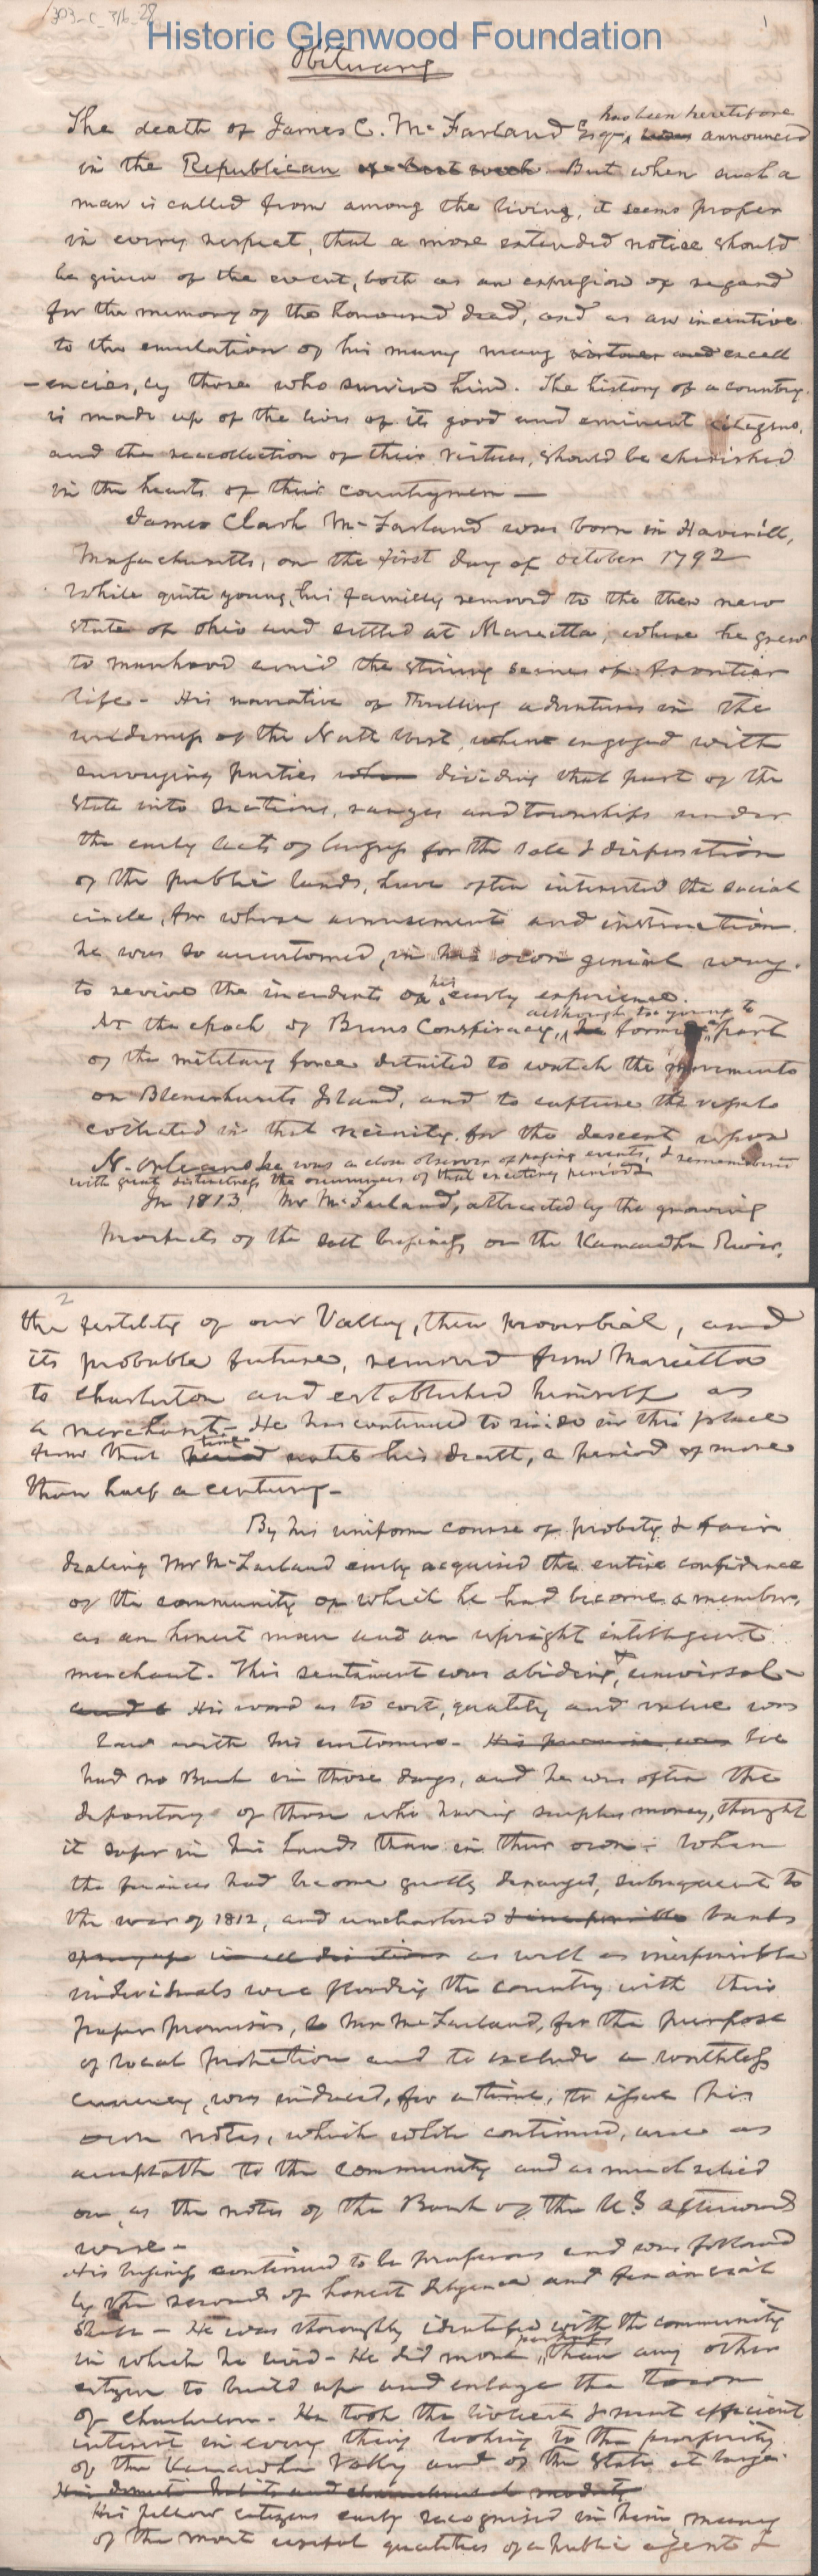 303-C_3/6_28
1
Historic Glenwood Foundation
Obituary
has been heretofore
The death of James C. McFarland Esqr, was announced
in the Republican of last week. But when such a
man is called from among the living, it seems proper
in every respect, that a more extended notice should
be given of the event, both as an expression of regard
for the memory of the honoured dead, and as an incentive
to the emulation of his many many virtues and excell
-encies, by those who survive him. The history of a country
is made up of the lives of its good and eminent citizens,
and the recollection of their virtues, should be cherished
in the hearts of their countrymen —
James Clark McFarland was born in Haverill,
Massachusetts, on the first day of October 1792
While quite young, his family removed to the then new
state of Ohio and settled at Marietta, where he grew
to manhood amid the stirring scenes of frontier
life - His narrative of thrilling adventures in the
wilderness of the North West, where engaged with
surveying parties when dividing that part of the
State into sections, ranges and townships under
the early acts of Congress for the sale & disposition
of the public lands, have often interested the social
circle, for whose amusement and instruction
he was so accustomed, in his own genial way
to revive the incidents of his early experience.
although too young to
At the epoch of Burrs Conspiracy, he formed a part
of the military force detailed to watch the movements
on Blennerhassets Island, and to capture the vessels
collected in that vicinity for the descent upon
N. Orleans he was a close observer of passing events, & remembered
with great distinctness the occurrences of that exciting period
In 1813 Mr McFarland, attracted by the growing
prospects of the salt business on the Kanawha River,
2
the fertility of our Valley, then proverbial, and
its probable future, removed from Marietta
to Charleston and established himself as
a merchant - He has continued to reside in this place
from that period time until his death, a period of more
than half a century -
By his uniform course of probity & fair
dealing Mr McFarland early acquired the entire confidence
of the community of which he had become a member,
as an honest man and an upright intelligent
merchant - This sentiment was abiding & universal -
and His word as to cost, quality and value was
law with his customers - His promise was We
had no Bank in those days, and he was often the
depository of those who having surplus money, thought
it safer in his hands than in their own - When
the finances had become greatly deranged, subsequent to
the war of 1812, and unchartered & irresponsible banks
sprung up in all directions as well as irresponsible
individuals were flooding the country with their
paper promises, Mr McFarland, for the purpose
of local protection and to exclude a worthless
currency, was induced, for a time, to issue his
own notes, which while continued, were as
acceptable to the community and as much relied
on, as the notes of the Bank of the U.S. afterward
were -
His business continued to be prosperous and was followed
by the rewards of honest diligence and financial
skill - He was thoroughly identified with the community
in which he lived - He did more perhaps than any other
citizen to build up and enlarge the town
of Charleston - He took the liveliest & most efficient
interest in every thing looking to the prosperity
of the Kanawha Valley and of the State at large.
His domestic habits and
His fellow citizens early recognised in him many
of the most useful qualities of a public agent &